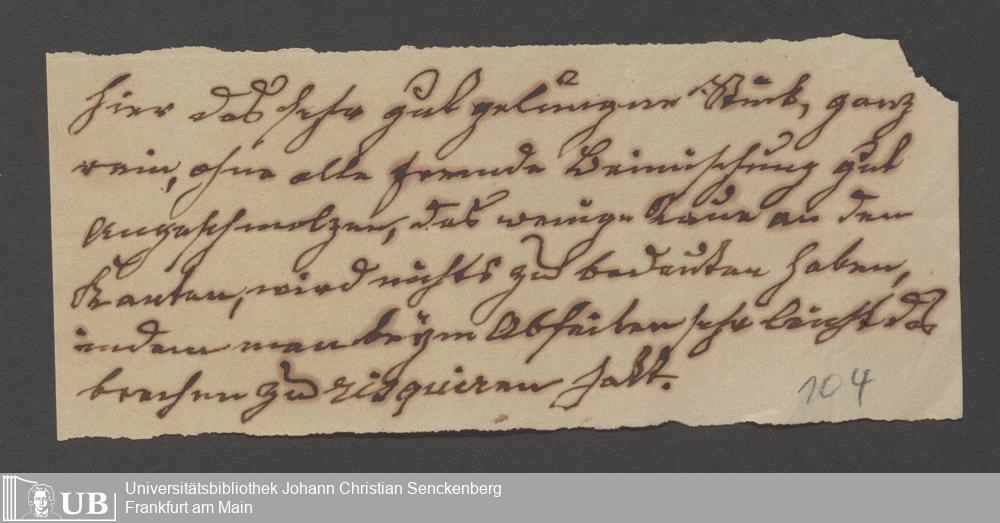 hier das sehr gut gelungne Stück, ganz
rein, ohne alle fremde Beimischung gut
Angeschmolzen, das wenige Raue an den
Kanten, wird nichts zu bedeuten haben,
indem man beÿm Abfeilen sehr leicht das
brechen zu risquieren hatt.
104
Universitätsbibliothek Johann Christian Senckenberg
Frankfurt am Main
UB